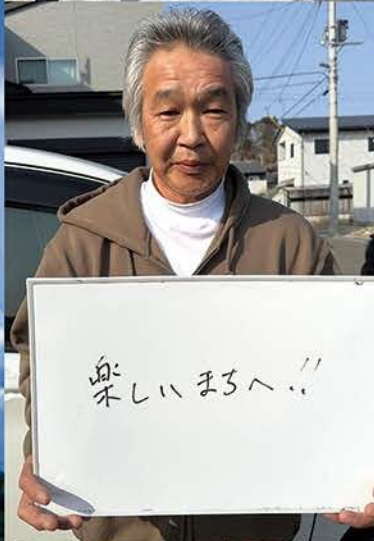 楽しいまちへ!!